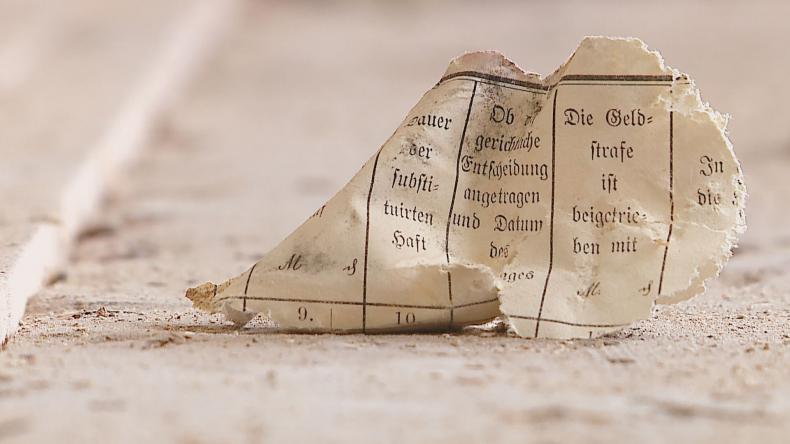 Dauer
der
substi-
tuirten
Haft
Ob
gerichtliche
Entscheidung
angetragen
und Datum
des
ages
Die Geld-
strafe
ist
beigetrie-
ben mit
In
die
M. S
M. S
9. 10